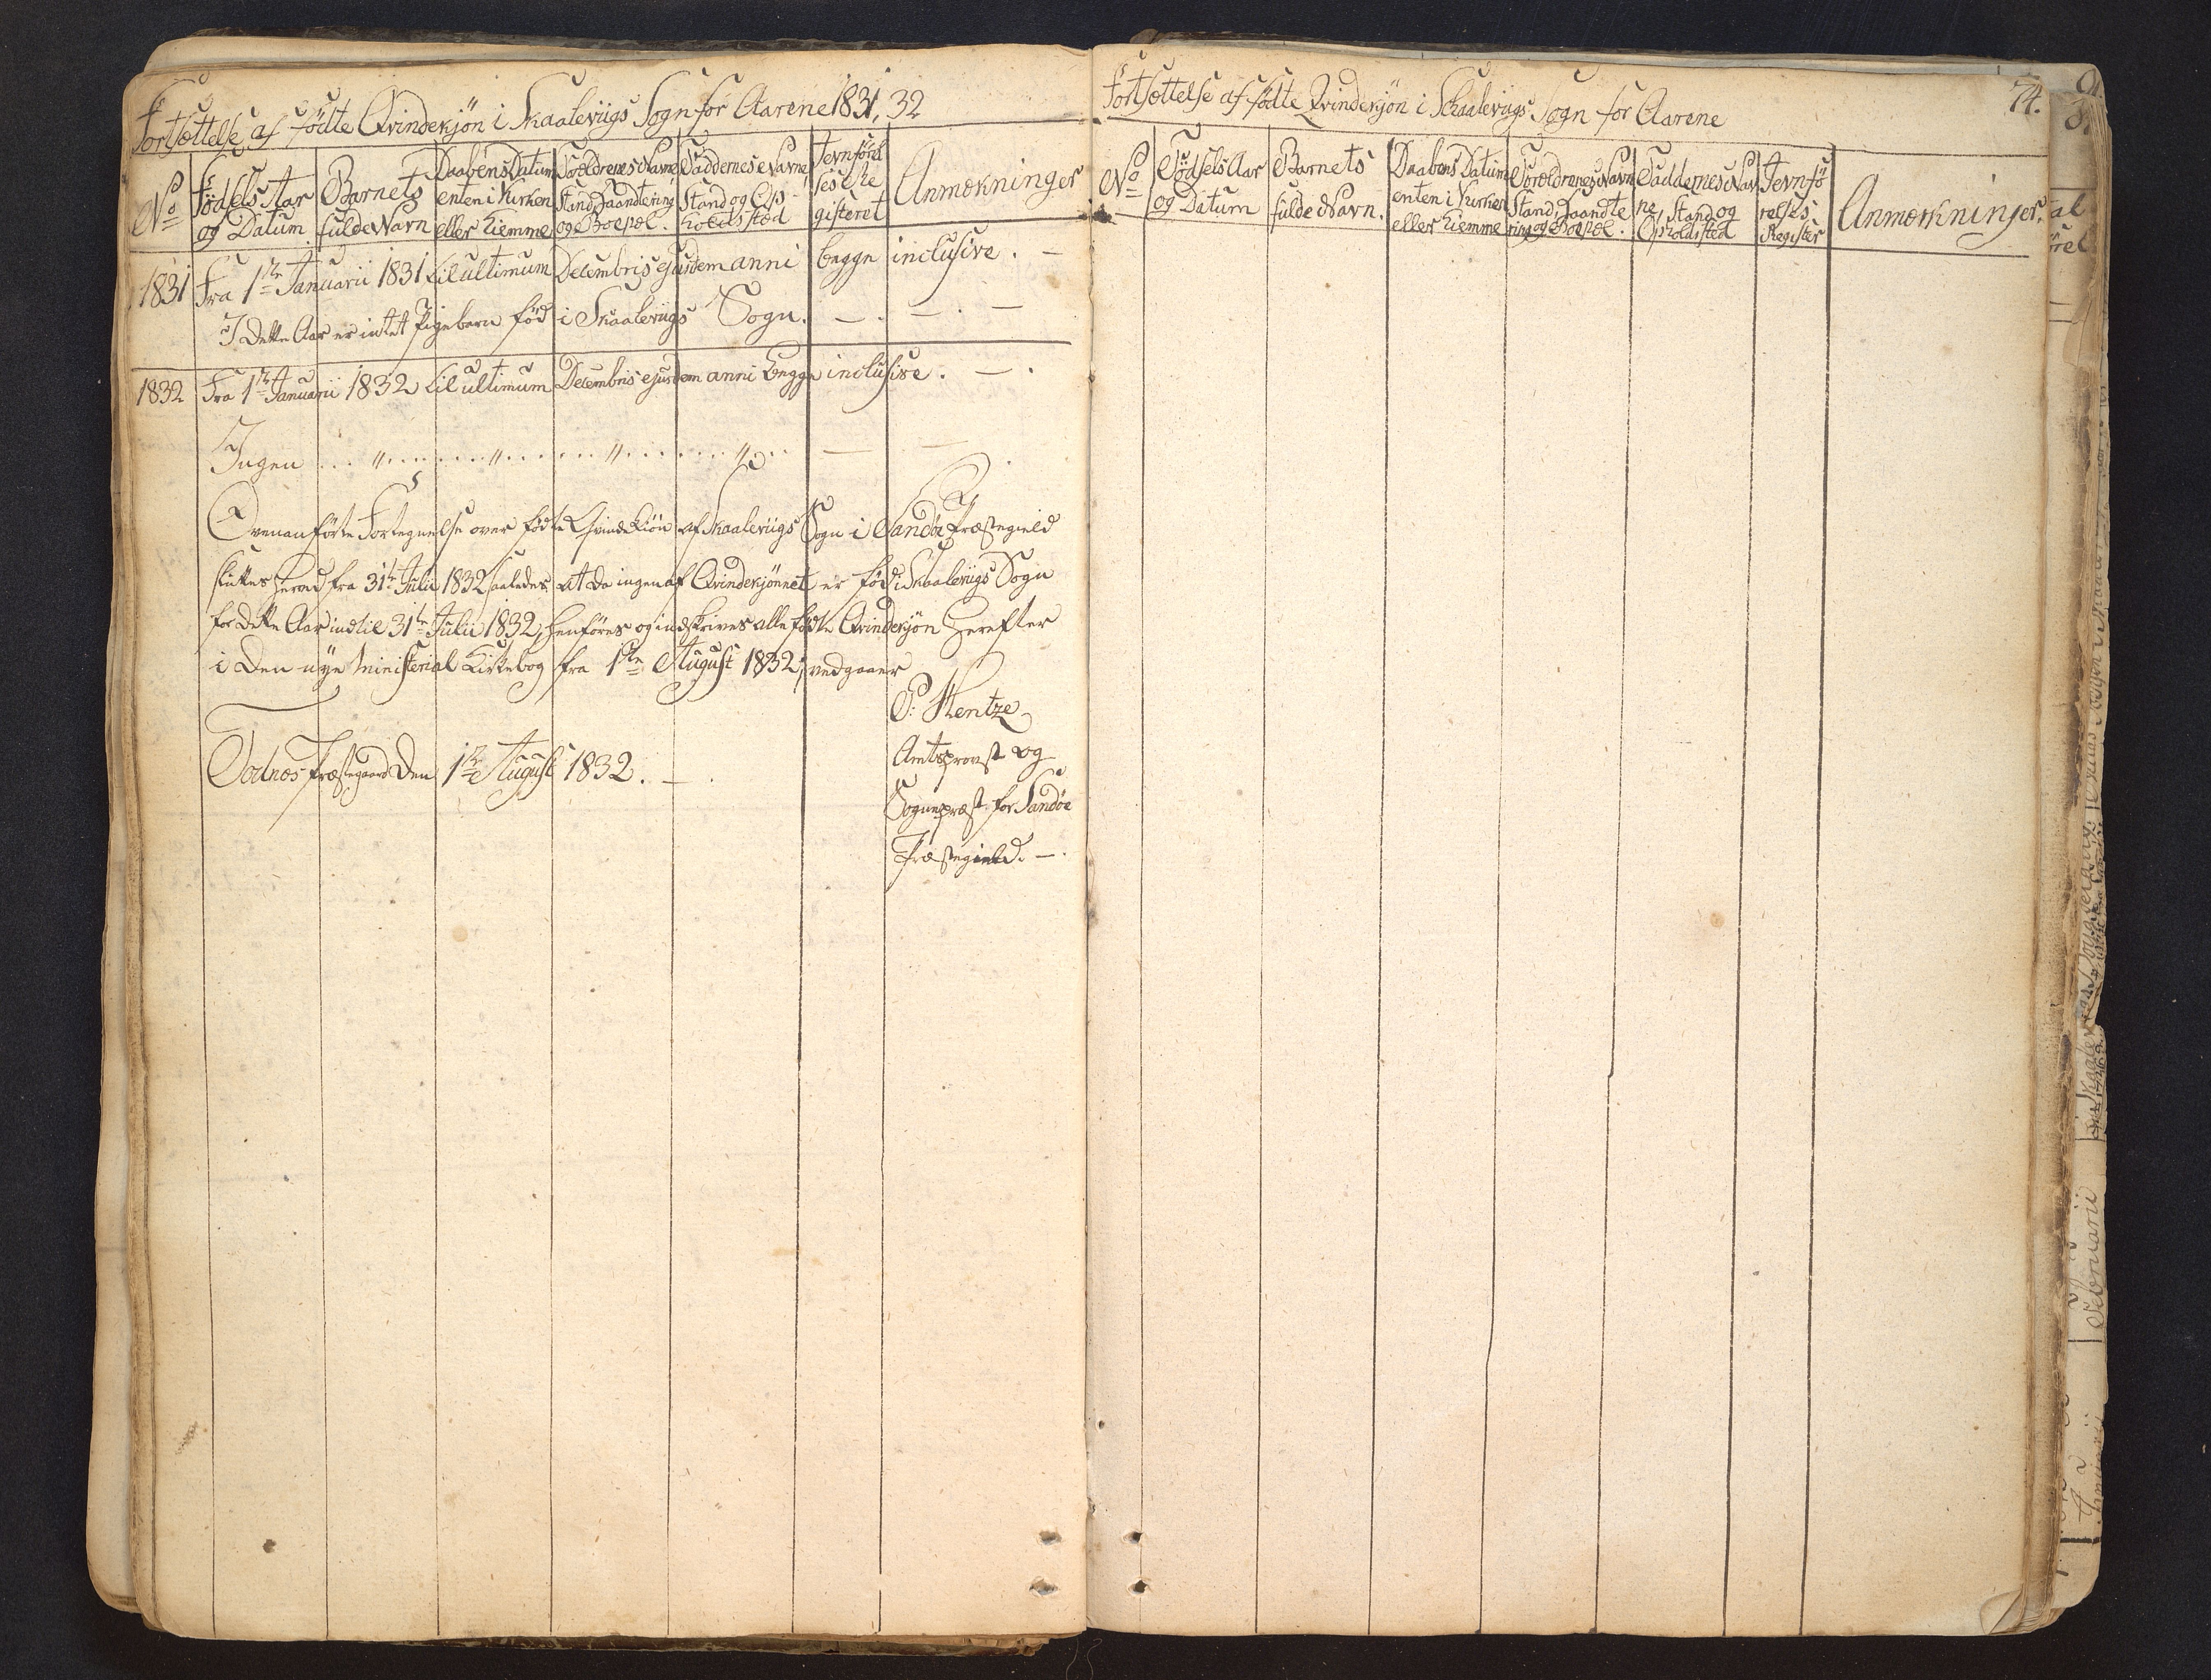 Fortsættelse af fødte Qvindekjön i Skaaleviigs Sogn for Aarene 1831, 32
No
Födsels Aar
og Datum
Barnets
fulde Navn
Daabens Datum
enten i Kirken
eller Hiemme
Forældrenes Navne
Stand Haandtering
og Boepæl.
Faddernes Navne
Stand og Op-
holdsstæd
Jevnförel
ses Re
gisteret
Anmærkninger
1831 Fra 1ste Januarii 1831 til ultimum Decembris ejusdem anni begge inclusive. —
I dette Aar er intet Pigebarn fød i Skaalevigs Sogn. — . — . —
1832 Fra 1ste Januarii 1832 til ultimum Decembris ejusdem anni begge inclusive. — .
Ingen ... " ..... " ..... " ..... " .. —
Ovenanförte Fortegnelse over födte Qvindekiön af Skaalevigs Sogn i Sandöe Præstegield
sluttes herved fra 31te Julii 1832 saaledes, at da ingen af Qvindekjönnet er fød i Skaalevigs Sogn
for dette Aar indtil 31te Julii 1832, henföres og indskrives alle födte Qvindekjön herefter
i den nye Ministerial Kirkebog fra 1ste August 1832, vedgaaer
P: Hentze
Amtsprovst og
Sognepræst for Sandöe
Præstegield. — .
Todnæs Præstegaard den 1ste August 1832. — .
Fortsættelse af födte Qvindekjön i Skaalevigs Sogn for Aarene
74.
No
Födsels Aar
og Datum
Barnets
fulde Navn.
Daabens Datum
enten i Kirken
eller Hiemme
Forældrenes Navn
Stand, Haandte
ring og Boepæl.
Faddernes Nav
ne, Stand og
Opholdssted
Jevnfö
relses
Register
Anmærkninger.